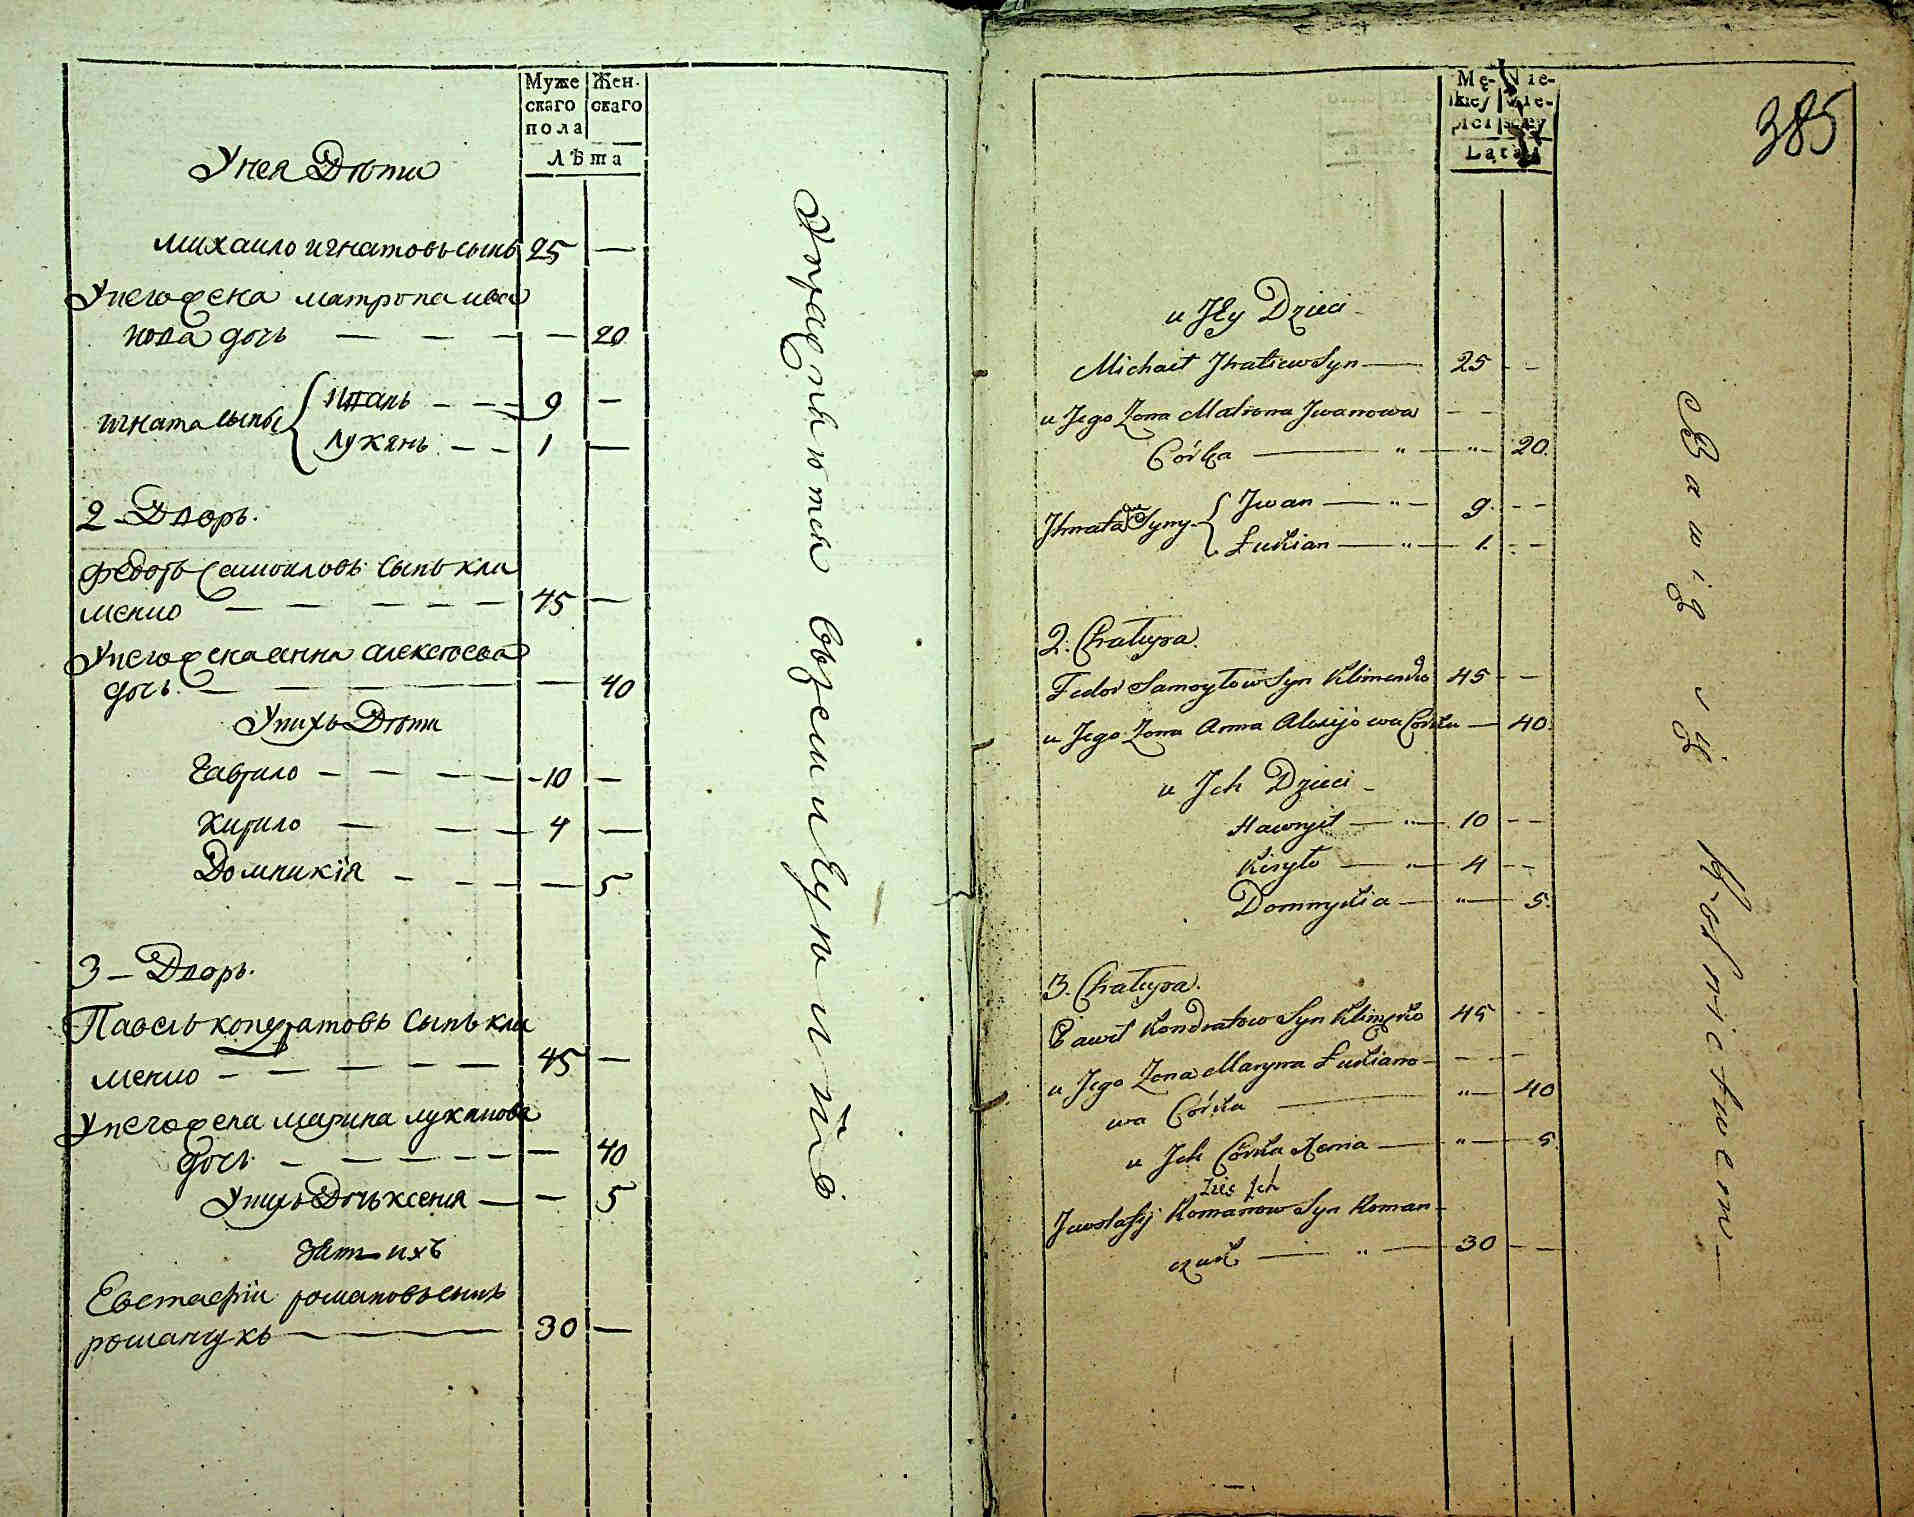 Муже Жен.
скаго скаго
пола
Лѣта
Унея Дѣти
михаило игнатовъ сынъ 25 —
Унего жена матрона ива
нова дочь — — — — 20
игната сыны { Иванъ — — 9 —
Лукянъ — — 1 —
2 — Дворъ.
Федоръ Самоиловъ сынъ кли
менко — — — — — 45 —
Унего жена анна алексѣева
дочь — — — — 40
Унихъ Дѣти
Гаврило — — — — 10 —
Кирило — — — 4 —
Домникія — — — — 5
3 — Дворъ.
Павелъ кондратовъ сынъ кли
менко — — — — — 45 —
Унего жена марина лукянова
дочь — — — — — 40
Унихъ Дочь ксенія — — 5
зять ихъ
Евстафіи романовъ сынъ
романчукъ — 30 —
Упражняются въ земледѣліи
385
Mę- Nie-
skiey wie-
płci sciey
Lata
u Jey Dzieci
Michaił Jhnatiew Syn — 25 - -
u Jego Zona Matrona Jwanowa - -
Córka — " — " — 20.
Jhnata Syny { Jwan — " — 9. - -
Łukian — " — 1. - -
2. Chałupa.
Fedor Samoyłow Syn Klimenko 45 - -
u Jego Zona Anna Alexijowa Córka — 40.
u Jch Dzieci
Hawryił — " — 10 - -
Kiryło — " — 4 - -
Domnykia — " — 5.
3. Chałupa.
Pawił Kondratow Syn Klimenko 45 - -
u Jego Zona Maryna Łukiano- - -
wa Córka — " — 40
u Jch Córka Xenia — " — 5.
Zięć Jch
Jewstafij Romanow Syn Roman-
czuk — " — 30 - -
Bawią się Rolnictwem